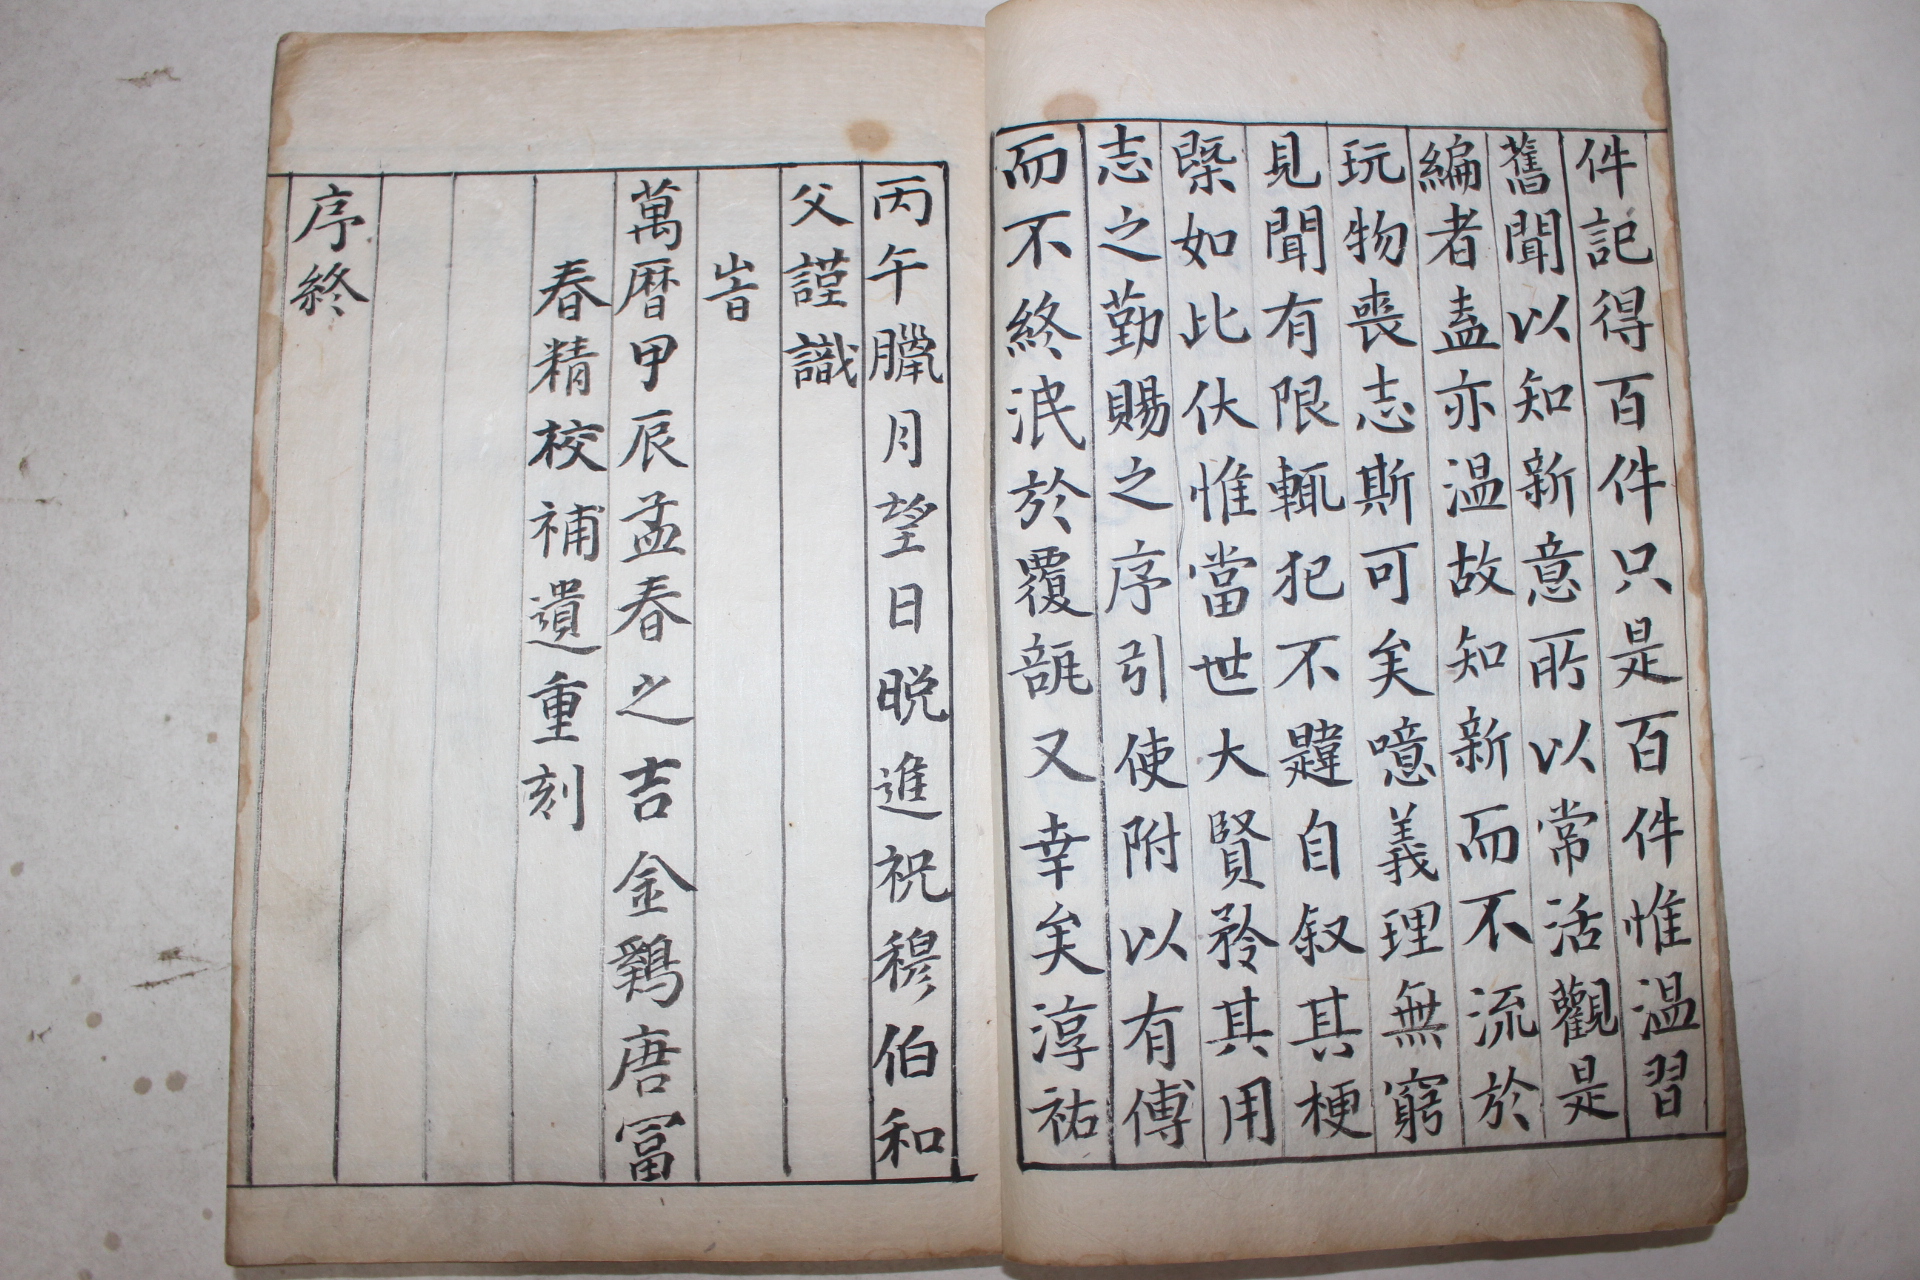 件記得百件只是百件惟温習
舊聞以知新意所以常活觀是
編者盍亦温故知新而不流於
玩物喪志斯可矣噫義理無窮
見聞有限輒犯不韙自叙其梗
槩如此伏惟當世大賢矜其用
志之勤賜之序引使附以有傳
而不終泯於覆瓿又幸矣淳祐
丙午臘月望日晩進祝穆伯和
父謹識
旹
萬暦甲辰孟春之吉金鷄唐冨
春精校補遺重刻
序終